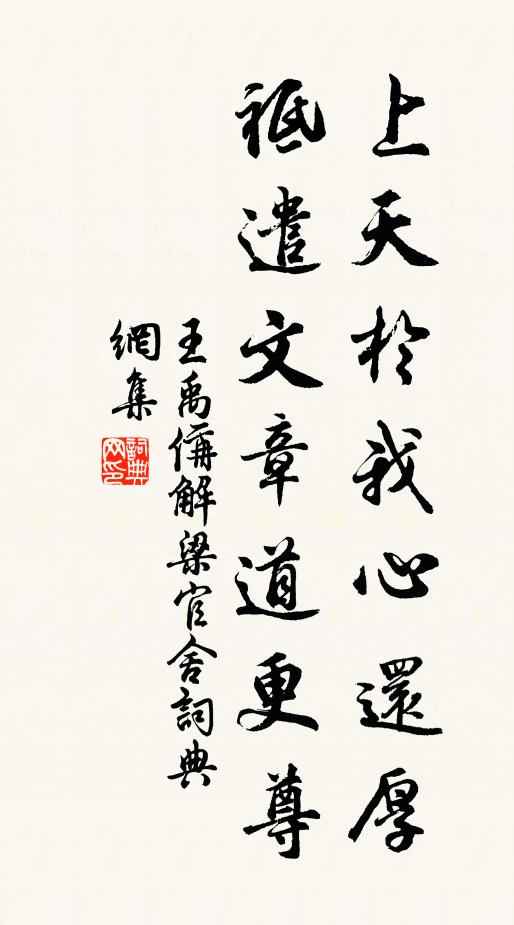 上天於我心還厚
祗遣文章道更尊
王禹偁解梁官舍詞典
網集
詞典網印